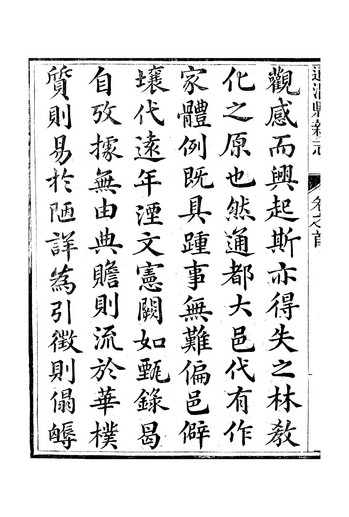 觀感而興起斯亦得失之林教
化之原也然通都大邑代有作
家體例既具踵事無難偏邑僻
壤代遠年湮文憲闕如甄錄曷
自攷據無由典贍則流於華樸
質則易於陋詳為引徵則傷